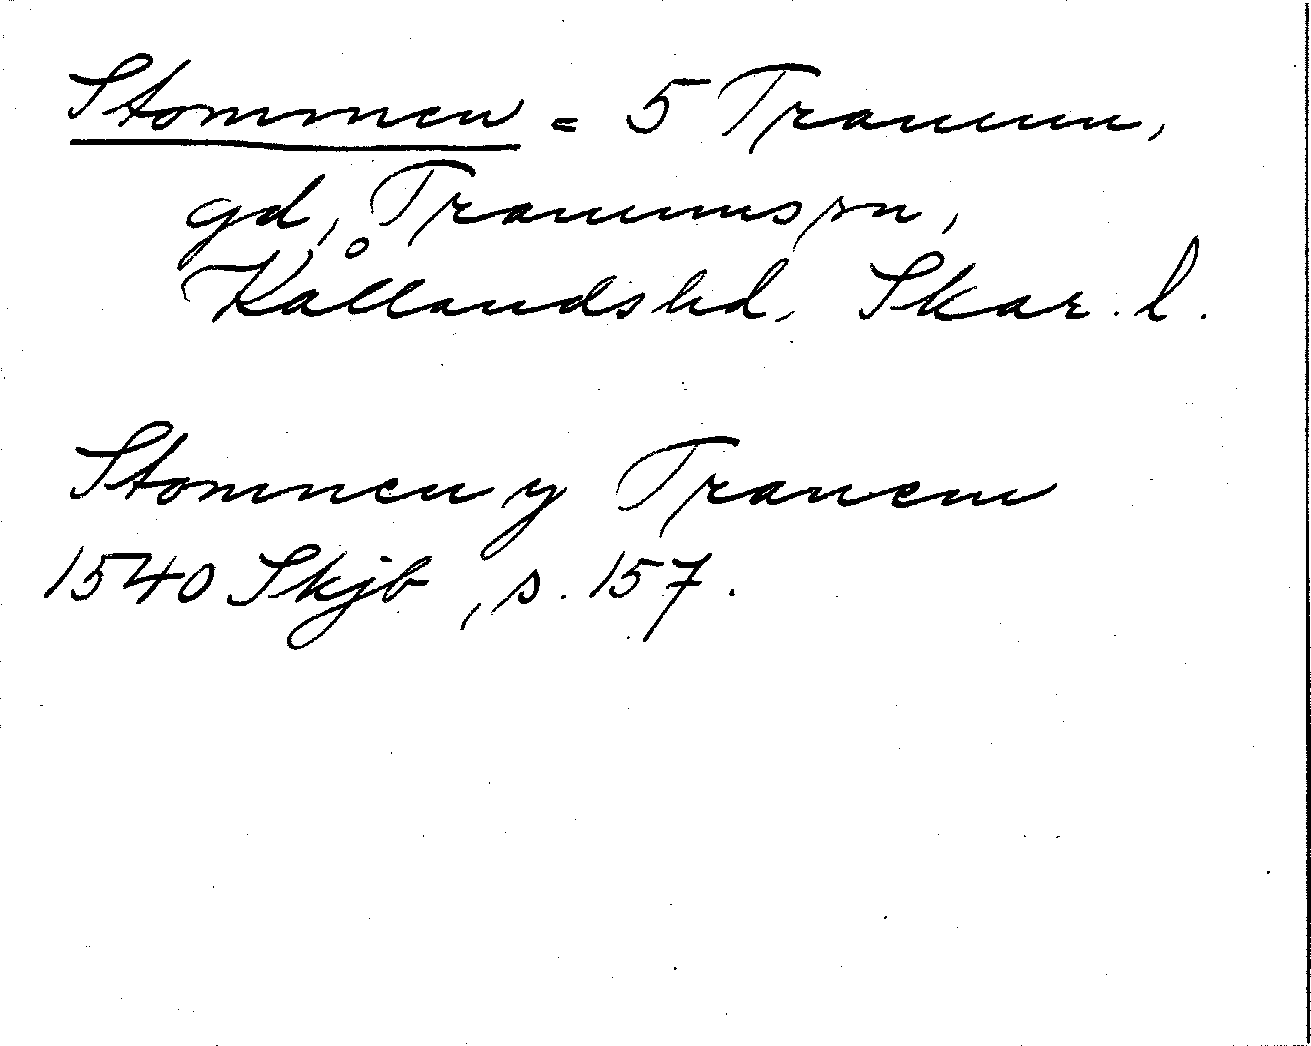 Stommen = 5 Tranum,
gd, Tranumssn,
Kållandshd, Skar. l.
Stomnen y Tranem
1540 Skjb, s. 157.